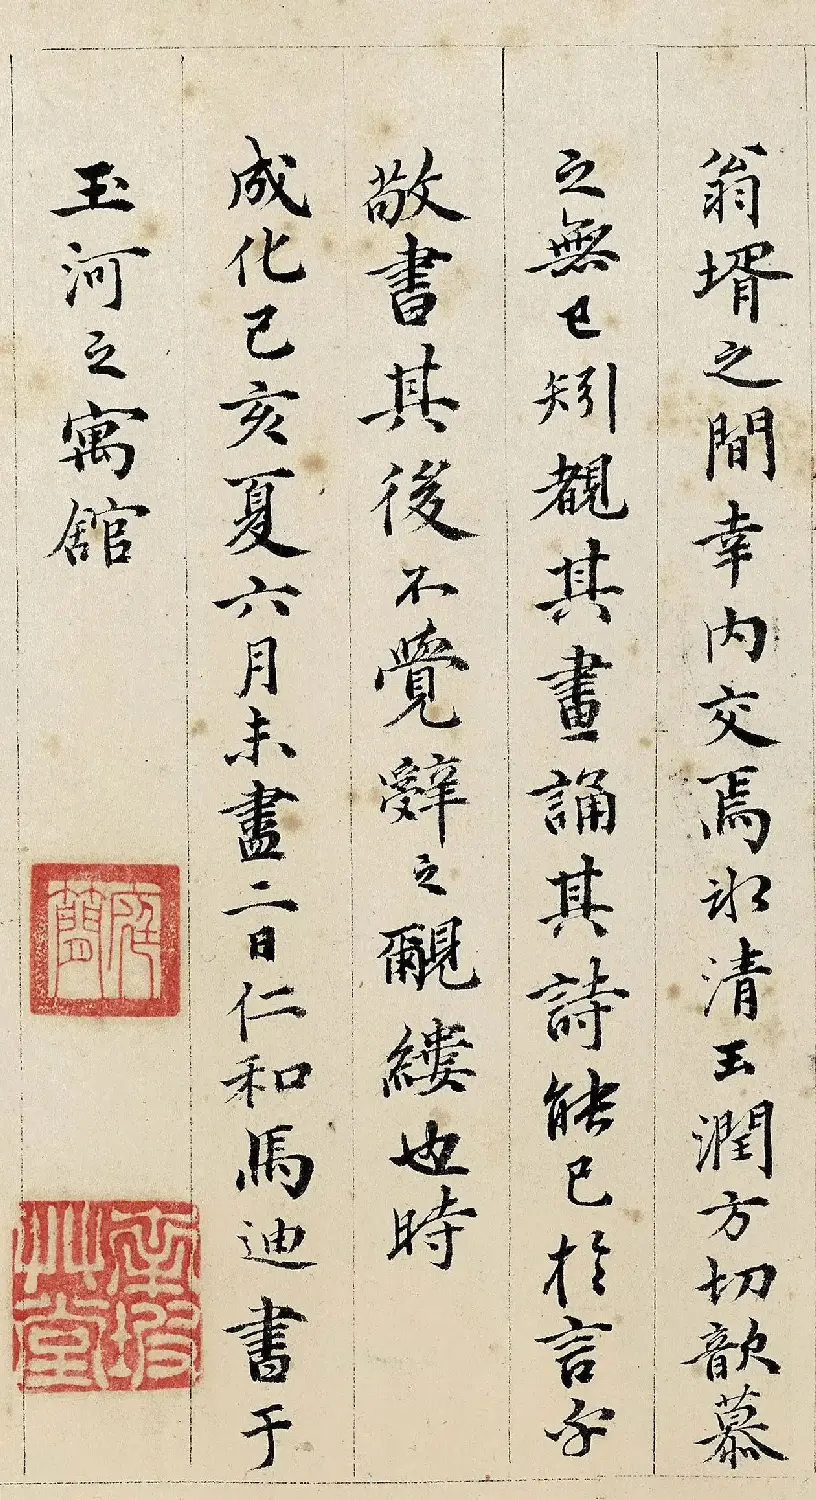 翁壻之間幸内交焉氷清玉潤方切歆慕
之無已矧覩其畫誦其詩能已於言乎
敬書其後不覺辭之覼縷也時
成化己亥夏六月未盡二日仁和馬迪書于
玉河之寓舘
坡艸堂